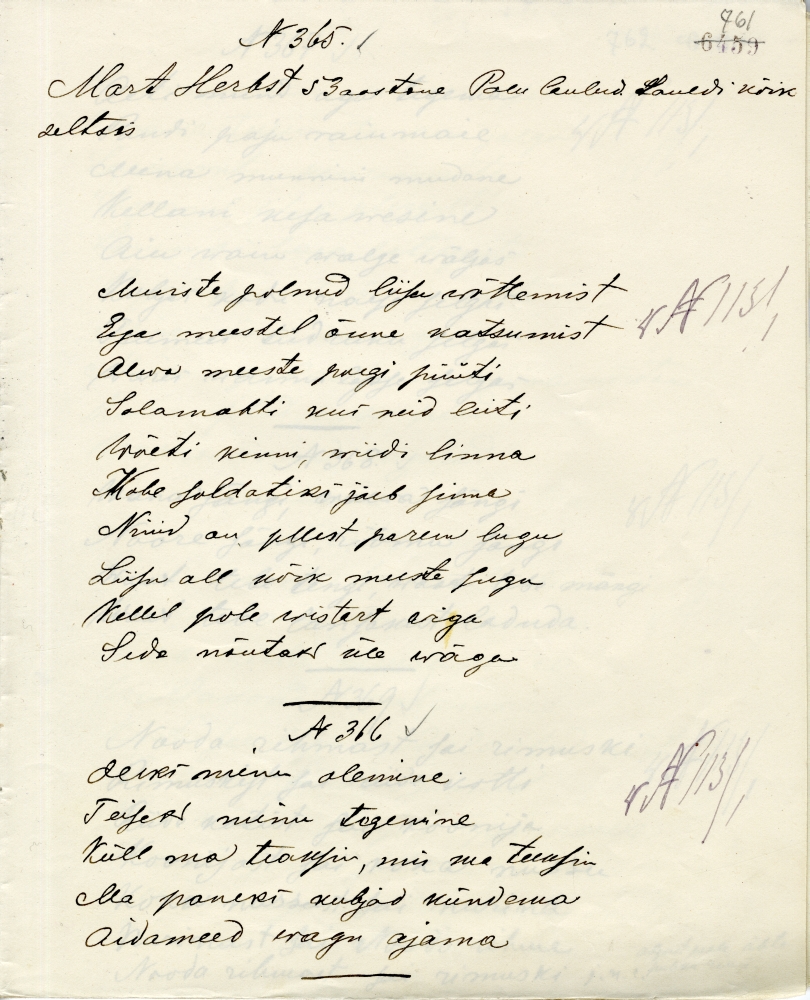 761
6459
N 365.
Mart Herbst 53 aastane Palu laulud. Lauldi kõik
seltsis
Muiste polnud liisu wõtlemist
Ega meestel õnne katsumist
Alwa meeste poegi püiti
Salamahti kus neid leiti
Wõeti kinni, wiidi linna
Kohe soldatiks jäeb sinna
Nüid on jllest parem lugu
Liisu all kõik meeste sugu
Kellel pole wistart wiga
Seda nõutaks üle wäga
N 113/1
N 366
Seiks minu olemine
Teiseks minu tegemine
Küll ma teaksin, mis ma teeksin
Ma paneks kubjad kündema
Aidameed wagu ajama
N 113/1